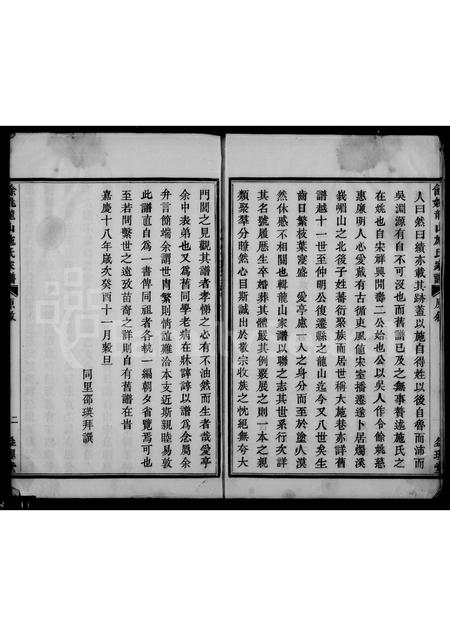 人曰然曰續亦載其跡蓋以施自得姓以後自魯而沛而
吳淵源有自不可沒也而舊譜已及之無事贅述施氏之
在姚也自宋祥興閒壽二公始也公以吳人作令餘姚慈
惠廉明人心愛戴有古循吏風値宋室播遷遂卜居燭溪
莪嵋山之北後子姓蕃衍聚族而居世稱大施巷亦詳舊
譜越十一世至仲明公復遷縣之龍山迄今又八世矣生
齒日繁枝葉寖盛愛亭慮一人之身分而至於塗人漠
然休戚不相關也輯龍山家譜以聯之志其世系行次詳
其名號履歷生卒婚葬其體例粲展之則一本之親
類聚羣分瞭然心目斯誠出於敬宗收族之忱絕無夸大
門閥之見觀其譜者孝悌之心有不油然而生者哉愛亭
余中表弟也又爲舊同學老病在牀諄諄以譜爲念屬余
弁言簡端余謂世胄繁則情誼難洽本支近斯親睦易敦
此譜直自爲一書俾同祖者各執一編朝夕省覽焉可也
至若閒繫世之遠攷苗裔之詳則自有舊譜在旹
嘉慶十八年歲次癸酉十一月穀旦
同里邵瑛拜譔
餘姚龍山施氏家譜
原敘
二